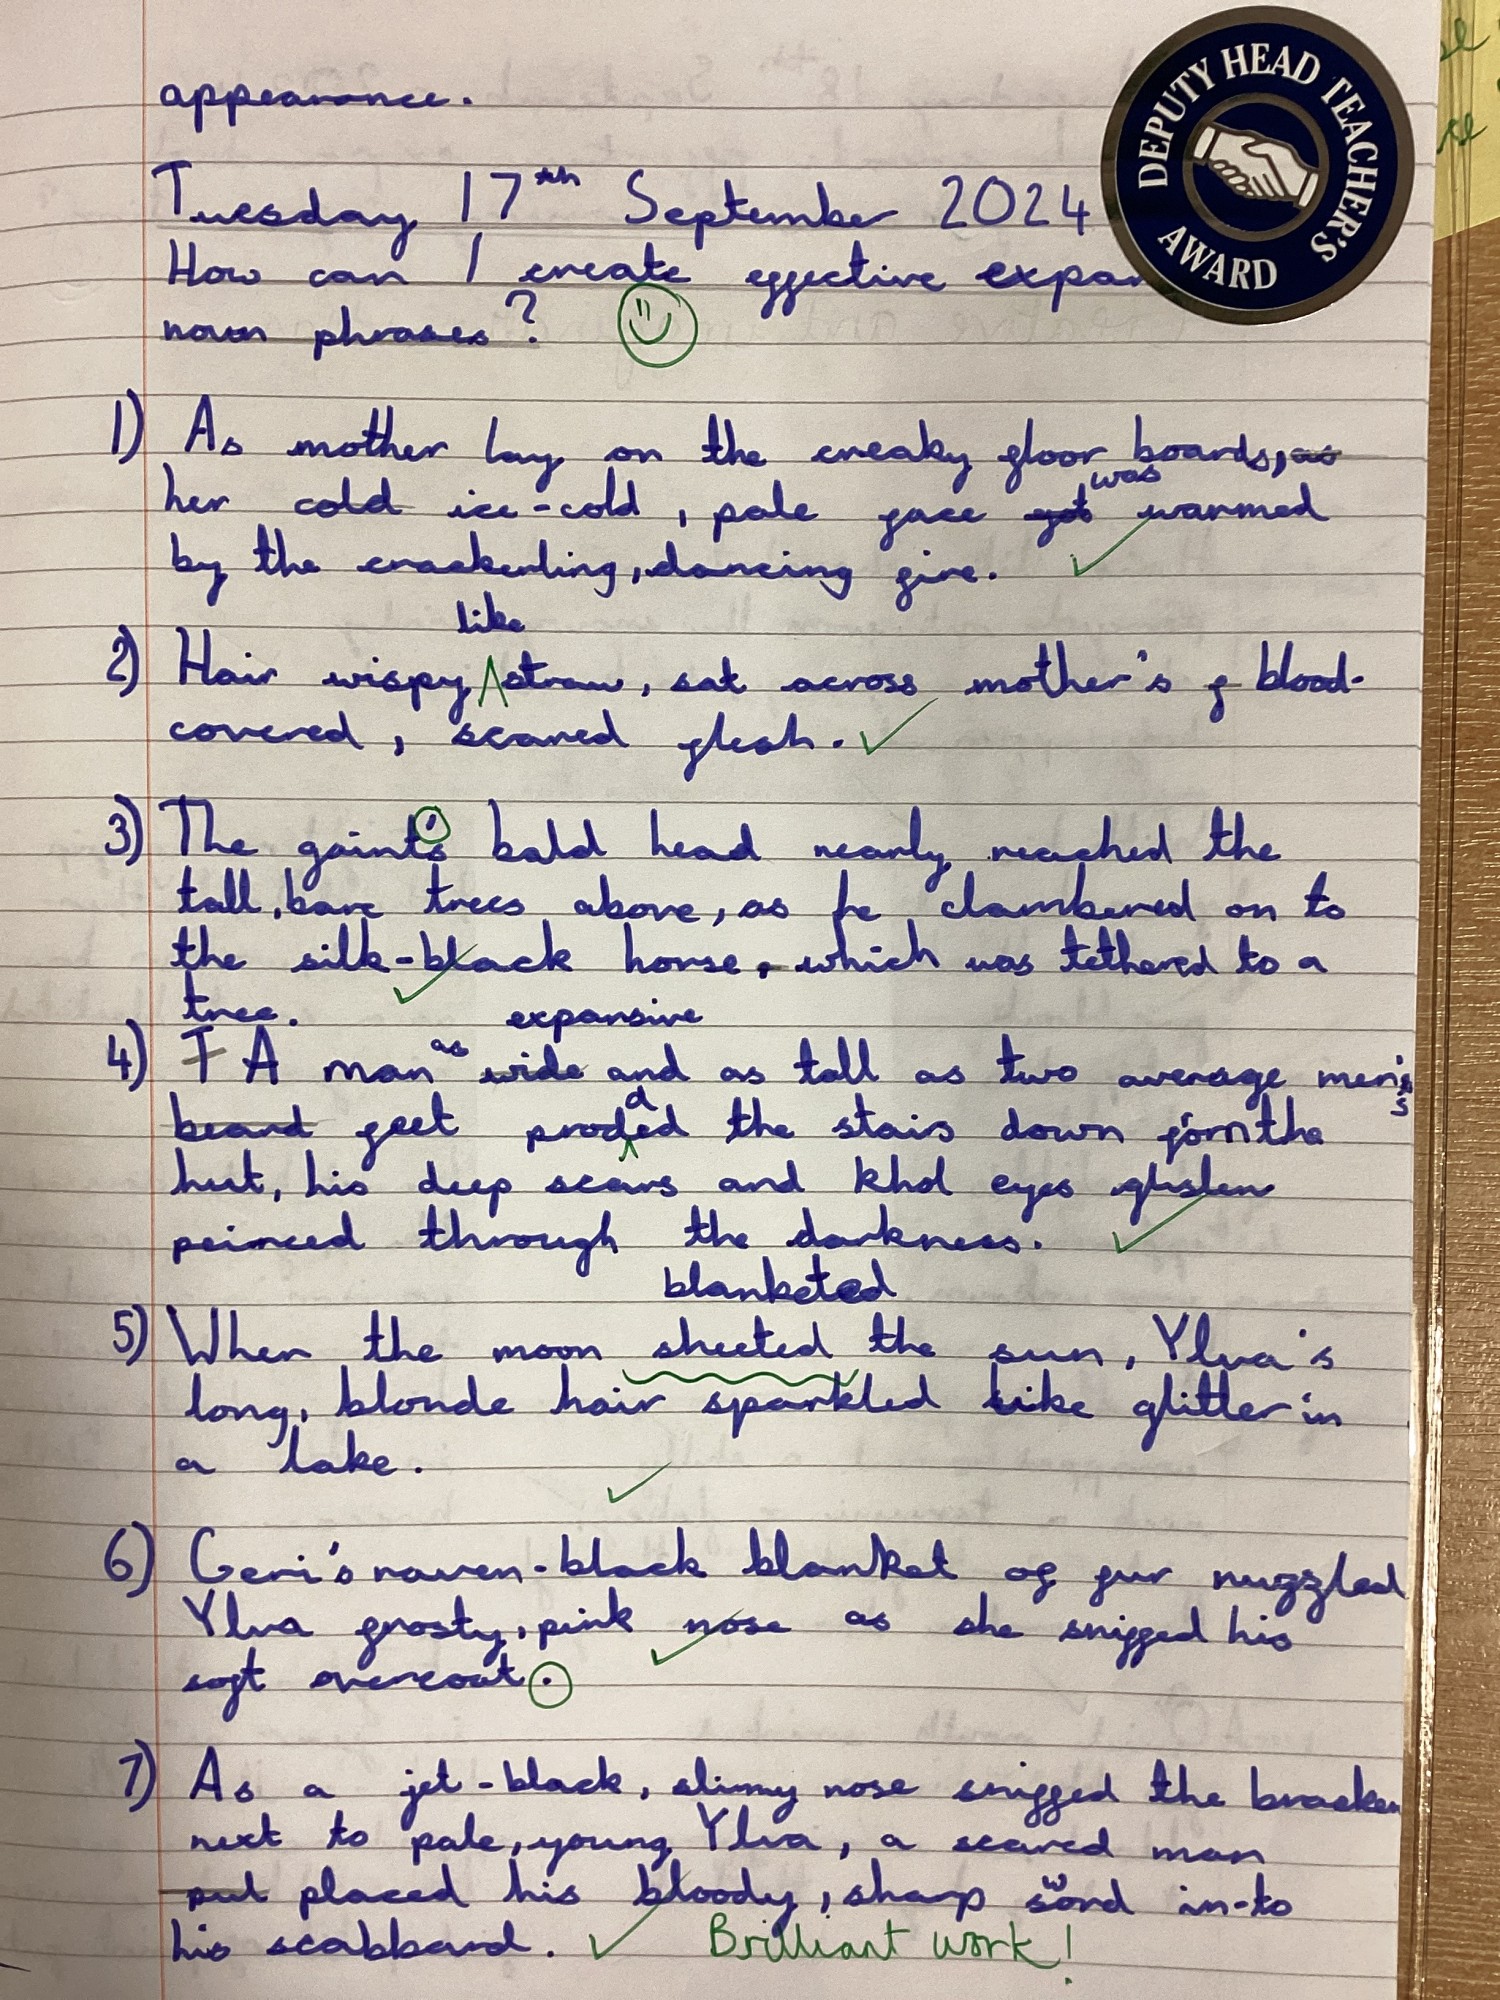 appearance.
DEPUTY HEAD TEACHER'S AWARD
Tuesday 17th September 2024
How can I create effective expan
noun phrases?
1) As mother lay on the creaky floor boards, as
her cold ice-cold, pale face got was warmed
by the crackerling, dancing fire.
like
2) Hair wispy straw, sat across mother's f blood-
covered, scared flesh.
3) The gaint's bald head nearly reached the
tall, bare trees above, as he clambered on to
the silk-black horse, which was tethered to a
tree.
expansive
4) T A man as wide and as tall as two average men's
beard feet proded the stairs down form the
hut, his deep scars and khol eyes glisten
peirced through the darkness.
blanketed
5) When the moon sheeted the sun, Ylva's
long, blonde hair sparkled like glitter in
a lake.
6) Geri's raven-black blanket of fur nuzzled
Ylva frosty, pink nose as she sniffed his
soft overcoat.
7) As a jet-black, slimy nose sniffed the bracken
next to pale, young Ylva, a scared man
put placed his bloody, sharp sword in-to
his scabbard. Brilliant work!